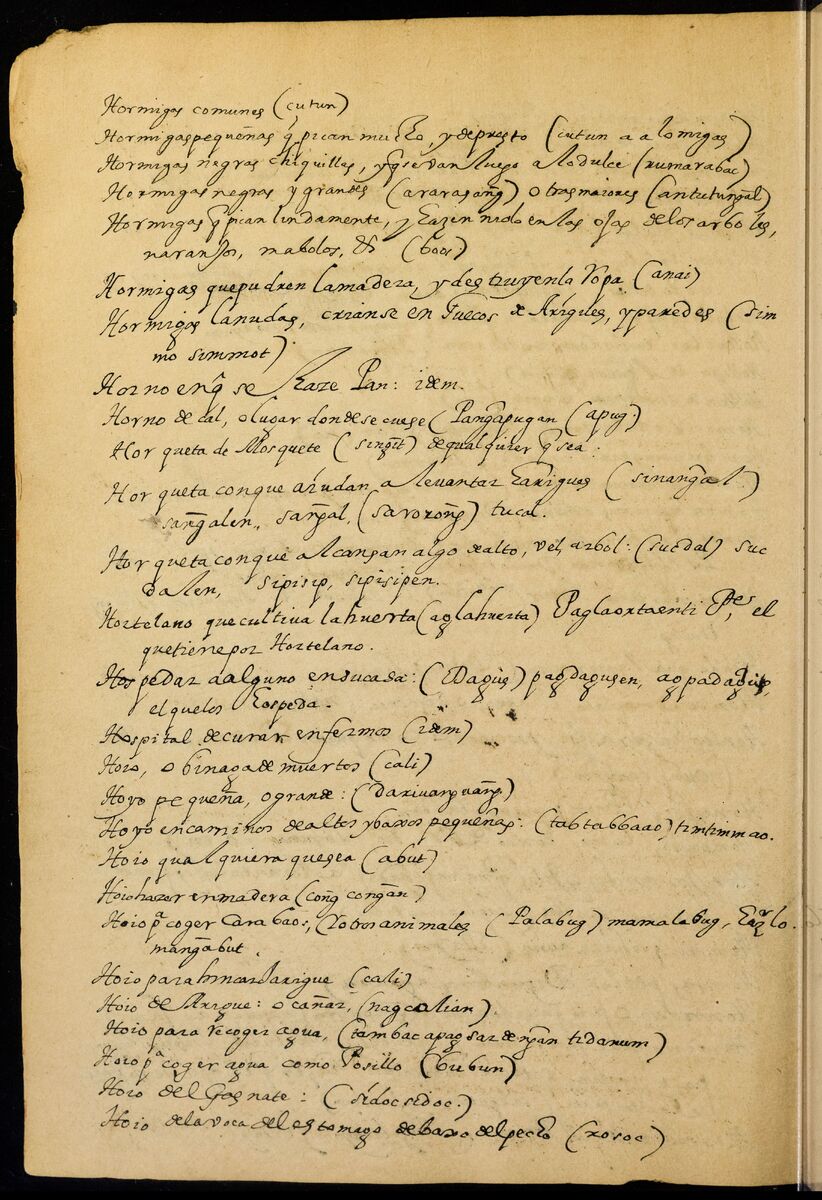 Hormigas comunes (cutun)
Hormigas pequeñas q̃ pican mucho, y de presto (cutun a a lomigas)
Hormigas negras chiquillas, y q̃ se van luego a lo dulce (rumarabac)
Hormigas negras y grandes (ararasang̃) o tras maiores (antutung̃al)
Hormigas q̃ pican lindamente, y hazen nido en las ojas de los arboles,
naranjos, mabolos, &c (boos)
Hormigas que pudren la madera, y destruyen la Ropa (anai)
Hormigas lanudas, crianse en huecos de Arigues, y paredes (sim
mo simmot)
Horno en q̃ se haze Pan: idem.
Horno de cal, o lugar donde se cuese (Pang̃apugan (apug)
Horqueta de Mosquete (sing̃it) de qualquier q̃ sea:
Horqueta con que aiudan a levantar harigues (sinang̃al)
sang̃alen, sang̃al, (savorong̃) tucal.
Horqueta con que alcansan algo de alto, vel, arbol: (sucdal) suc
dalen, sipisip, sipisipen.
Hortelano que cultiva la huerta (aglahuerta) Paglaortaenti Pes, el
que tiene por Hortelano.
Hospedar a alguno en su casa: (Dagus) pagdagusen, agpadagus,
el que los hospeda.
Hospital de curar enfermos (idem)
Hoio, o binaga de muertos (cali)
Hoyo pequeña, o grande: (darivang̃vang̃)
Hoyo en caminos de altos y baxos pequeñas: (tabtabbaao) timtimmao.
Hoio qual quiera que sea (abut)
Hoio hazer en madera (cong̃cong̃an)
Hoio pa coger Carabaos, (Y otros animales (Palabug) mamalabug, hazerlo.
mang̃abut
Hoio para hincar harigue (cali)
Hoio de Arigue: o cañas, (nagcalian)
Hoio para recoger agua, (tambac apagsardeng̃an ti danum)
Hoio pa coger agua como Posillo (bubun)
Hoio del Gasnate: (sidocsidoc)
Hoio de la voca del estomago debaxo del pecho (rosoc)